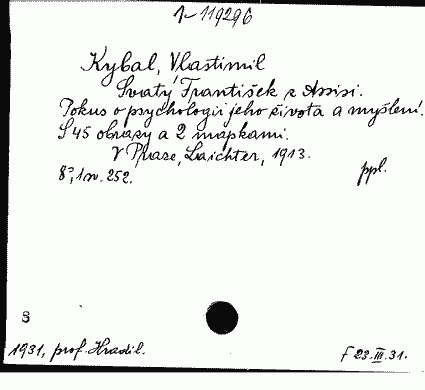 1-119296
Kybal, Vlastimil
Svatý František z Assisi.
Pokus o psychologii jeho života a myšlení.
S 45 obrazy a 2 mapkami.
V Praze, Laichter, 1913.
8°, 1 sv. 252. ppl.
S
1931, prof. Hradil. f 23.III.31.